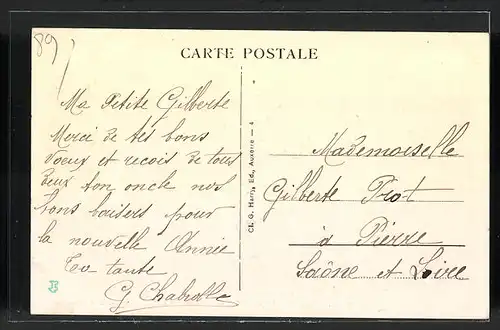 89
CARTE POSTALE
Ma Petite Gilberte
Merci de tes bons
voeux et recois de tous
deux ton oncle nos
bons baisers pour
la nouvelle Année
Ta tante
G. Chabrolle
Cl. G. Ed., Auxerre — 4
Mademoiselle
Gilberte Prot
à Pierre
Saône et Loire